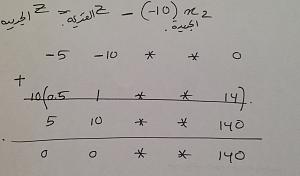 Z الجديدة = Z القديمة - (-10) x₂
-5 -10 * * 0
+
10(0.5 1 * * 14)
5 10 * * 140
0 0 * * 140